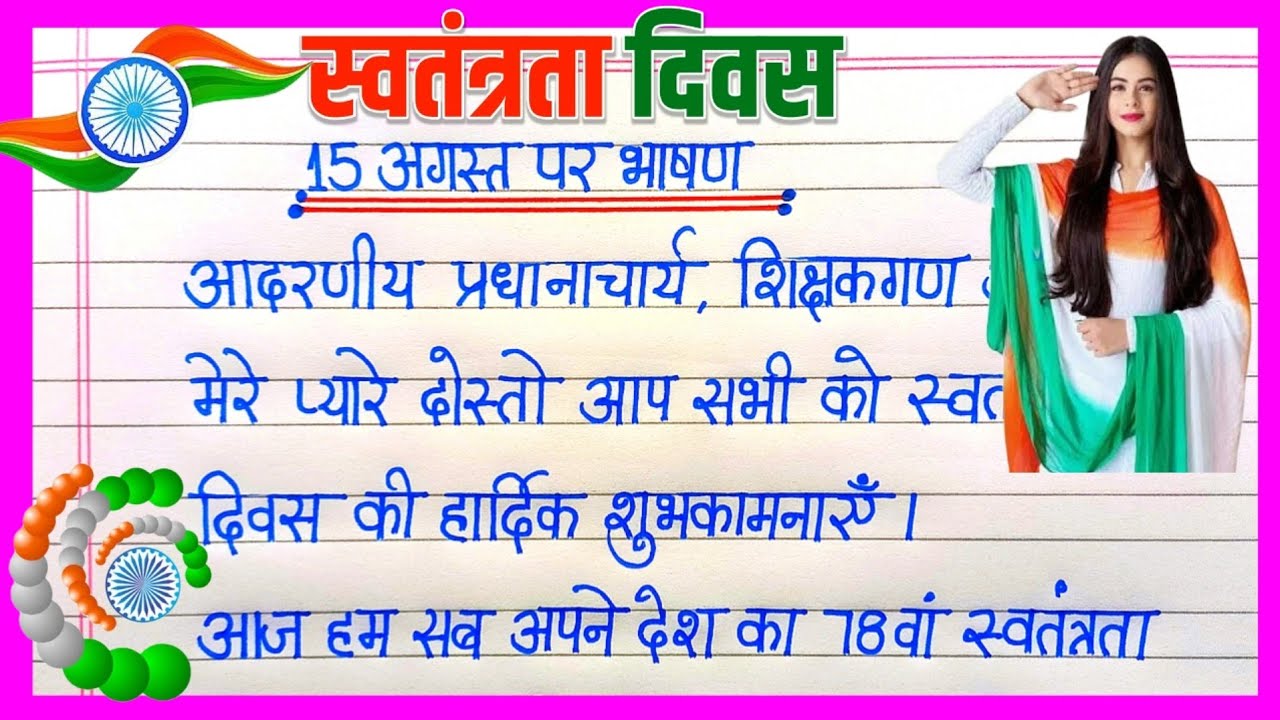 स्वतंत्रता दिवस
15 अगस्त पर भाषण
आदरणीय प्रधानाचार्य, शिक्षकगण
मेरे प्यारे दोस्तो आप सभी को
दिवस की हार्दिक शुभकामनाएँ।
आज हम सब अपने देश का 78वां स्वतंत्रता